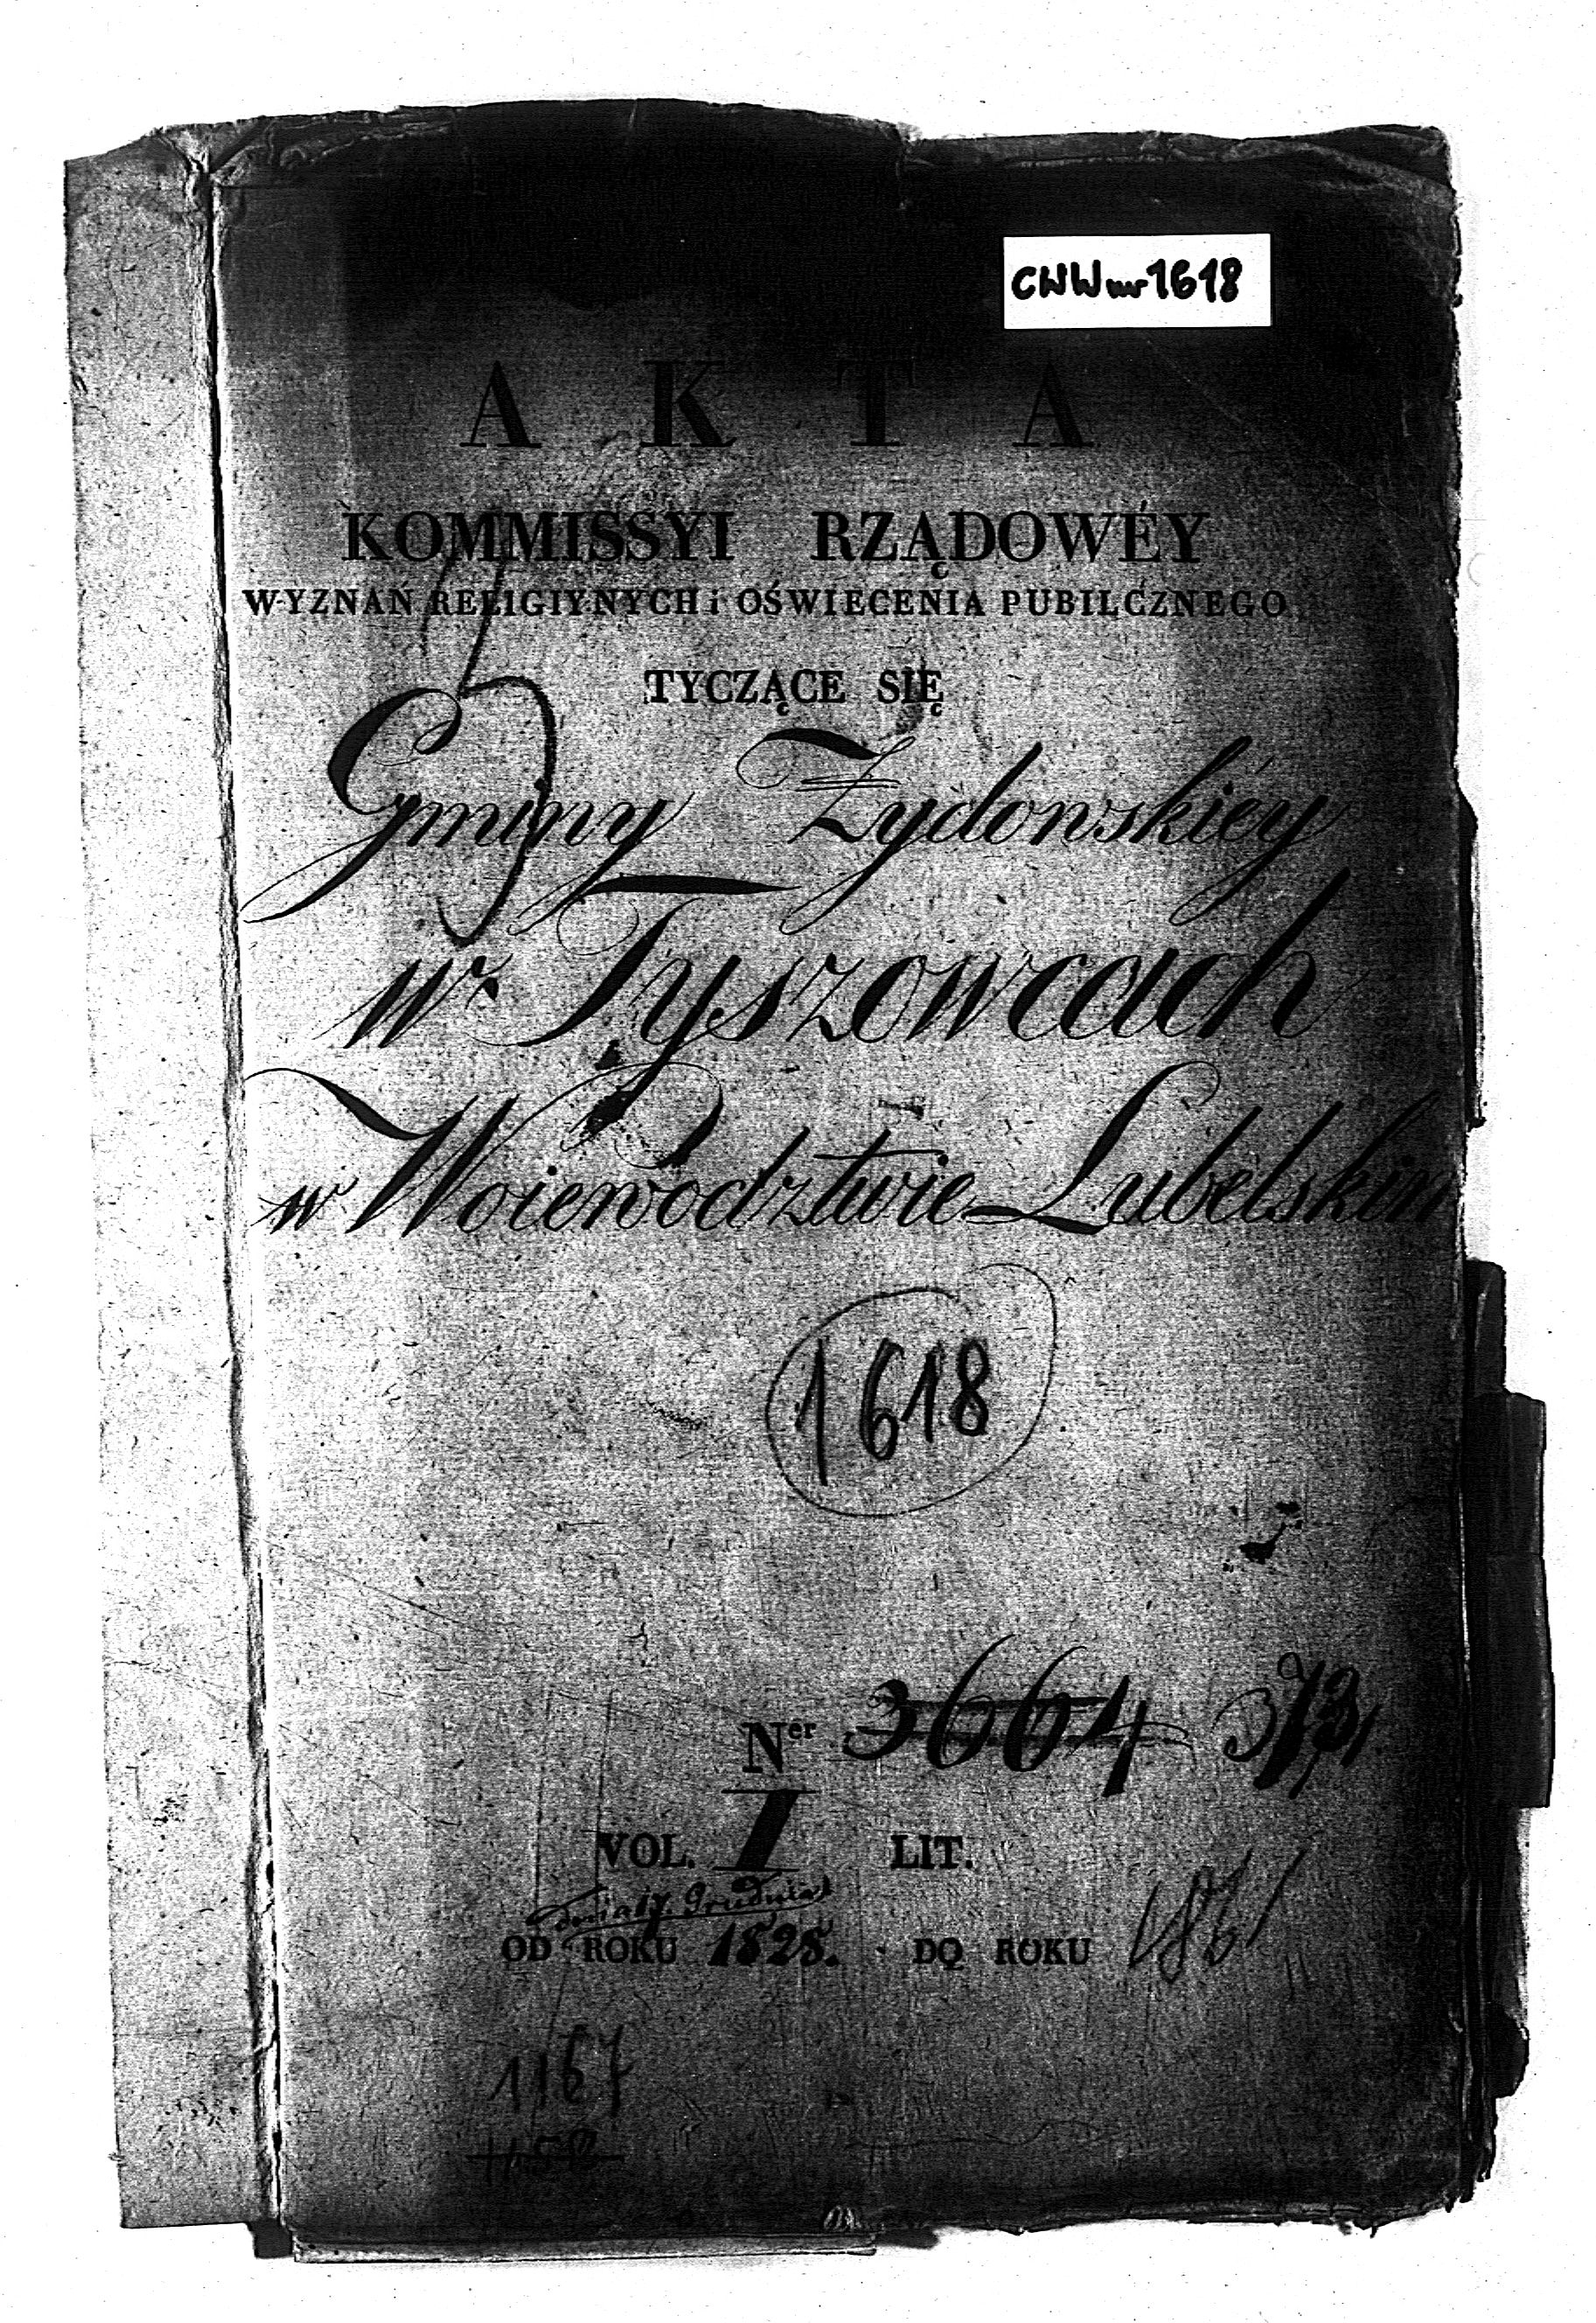 CWW nr 1618
AKTA
KOMMISSYI RZĄDOWÉY
WYZNAŃ RELIGIYNYCH i OŚWIECENIA PUBILCZNEGO
TYCZĄCE SIĘ
Gminy Żydowskiéy
w Tyszowcach
w Woiewodztwie Lubelskim
1618
Ner 3664 373,
VOL. I LIT.
dnia 17 Grudnia
OD ROKU 1828. DO ROKU
1167